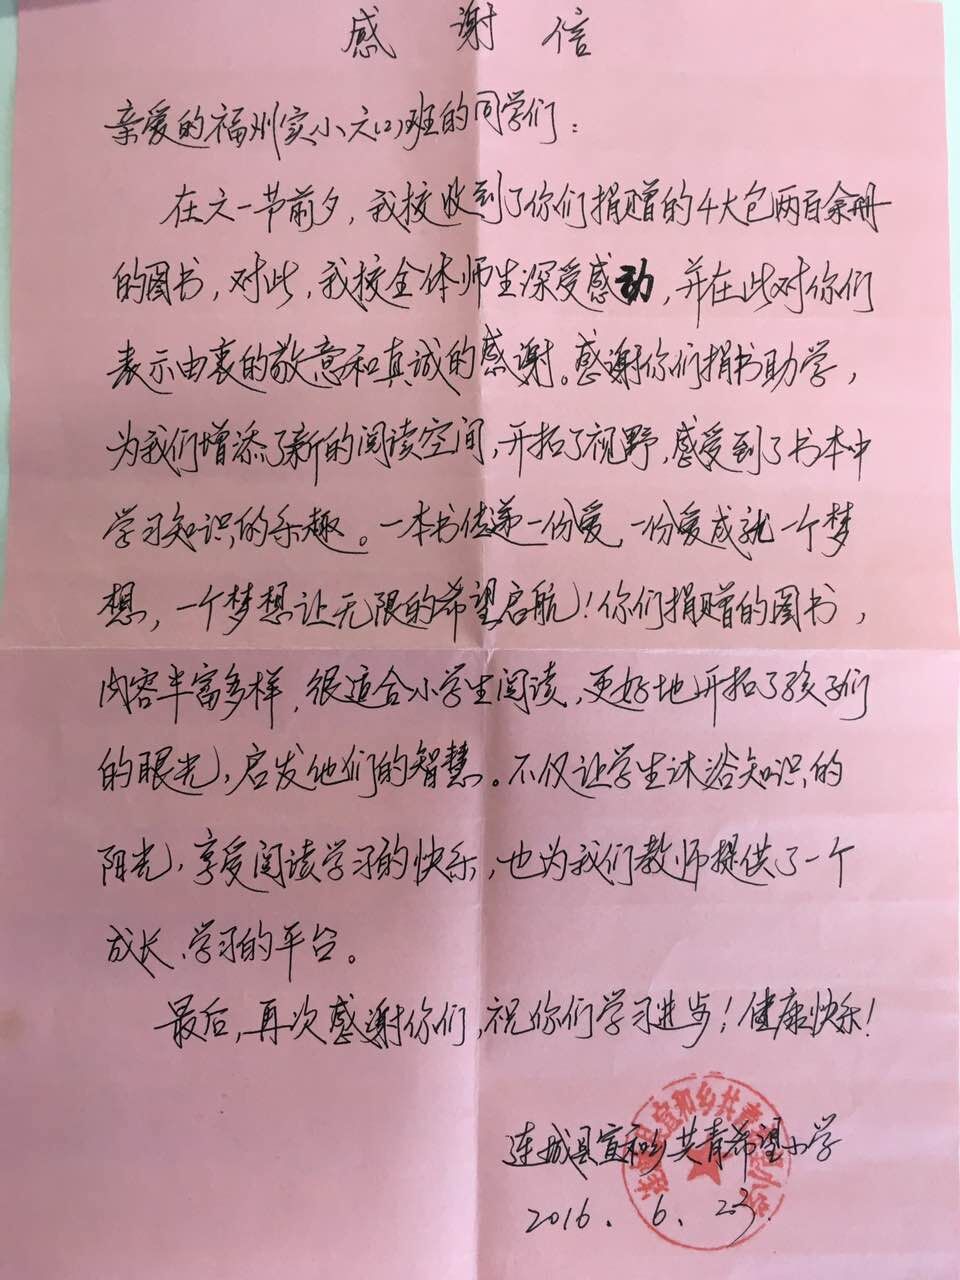 感谢信
亲爱的福州实小六(2)班的同学们：
在六一节前夕，我校收到了你们捐赠的4大包两百余册
的图书，对此，我校全体师生深受感动，并在此对你们
表示由衷的敬意和真诚的感谢。感谢你们捐书助学，
为我们增添了新的阅读空间，开拓了视野，感受到了书本中
学习知识的乐趣。一本书传递一份爱，一份爱成就一个梦
想，一个梦想让无限的希望启航！你们捐赠的图书，
内容丰富多样，很适合小学生阅读，更好地开拓了孩子们
的眼光，启发他们的智慧。不仅让学生沐浴知识的
阳光，享受阅读学习的快乐，也为我们教师提供了一个
成长、学习的平台。
最后，再次感谢你们，祝你们学习进步！健康快乐！
连城县宣和乡共青希望小学
2016.6.23.